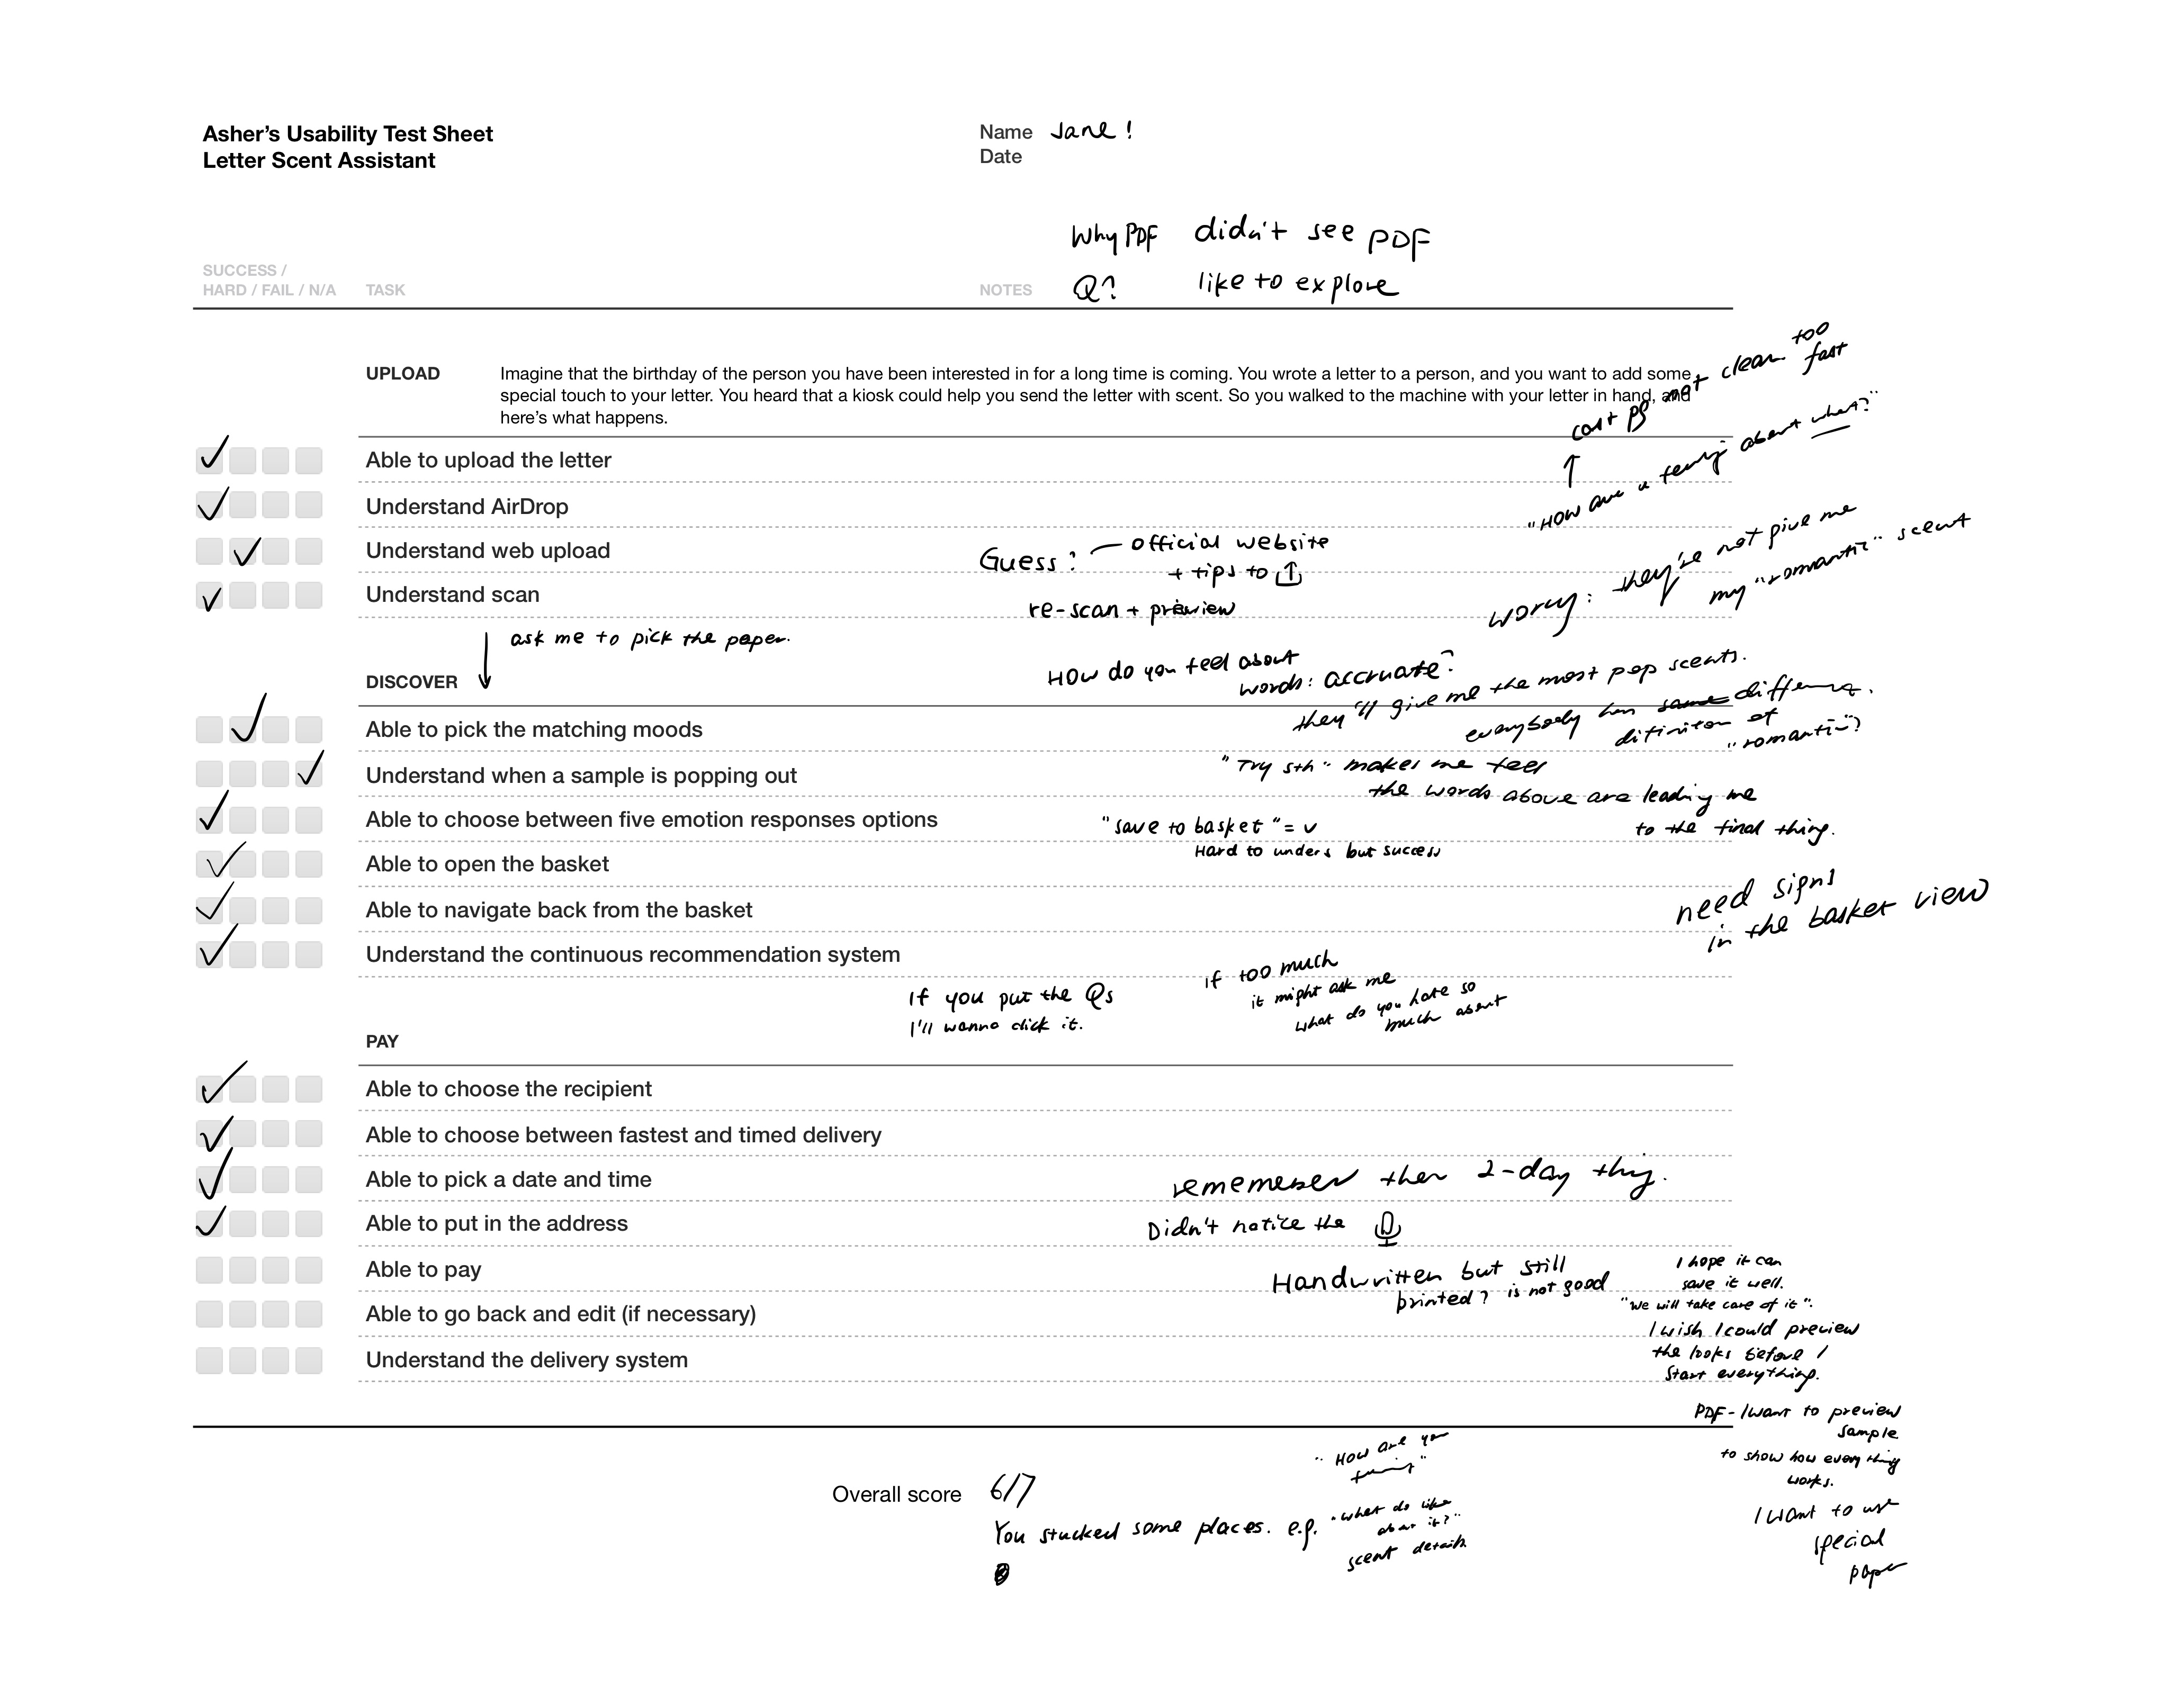 Asher's Usability Test Sheet
Letter Scent Assistant
Name Jane!
Date
Why PDF didn't see PDF
Q? like to explore
SUCCESS /
HARD / FAIL / N/A TASK NOTES
UPLOAD Imagine that the birthday of the person you have been interested in for a long time is coming. You wrote a letter to a person, and you want to add some
special touch to your letter. You heard that a kiosk could help you send the letter with scent. So you walked to the machine with your letter in hand, and
here's what happens.
not clear too
fast
"How are u about what?"
Able to upload the letter
Understand AirDrop
Understand web upload
Guess? official website
+ tips to
Understand scan
re-scan + preview
worry: they're not give me
my "romantic" scent
ask me to pick the paper.
DISCOVER
How do you feel about
words: accruate?
they'll give me the most pop scents.
everybody has same differens.
difinition of
"romantic"?
Able to pick the matching moods
Understand when a sample is popping out
"Try sth" makes me feel
the words above are leading me
to the final thing.
Able to choose between five emotion responses options
"save to basket" = v
Hard to unders but success
Able to open the basket
Able to navigate back from the basket
need signs
in the basket view
Understand the continuous recommendation system
If you put the Qs
I'll wanna click it.
if too much
it might ask me
what do you hate so
much about
PAY
Able to choose the recipient
Able to choose between fastest and timed delivery
Able to pick a date and time
2-day
Able to put in the address
Didn't notice the
Able to pay
Handwritten but still
printed? is not good
Able to go back and edit (if necessary)
Understand the delivery system
I hope it can
save it well.
"We will take care of it".
I wish I could preview
the looks before I
start everything.
PDF - I want to preview
sample
to show how everything
works.
I want to use
special
paper
Overall score 6/7
You stucked some places. e.g.
"How are you
"what do like
about it?"
scent details